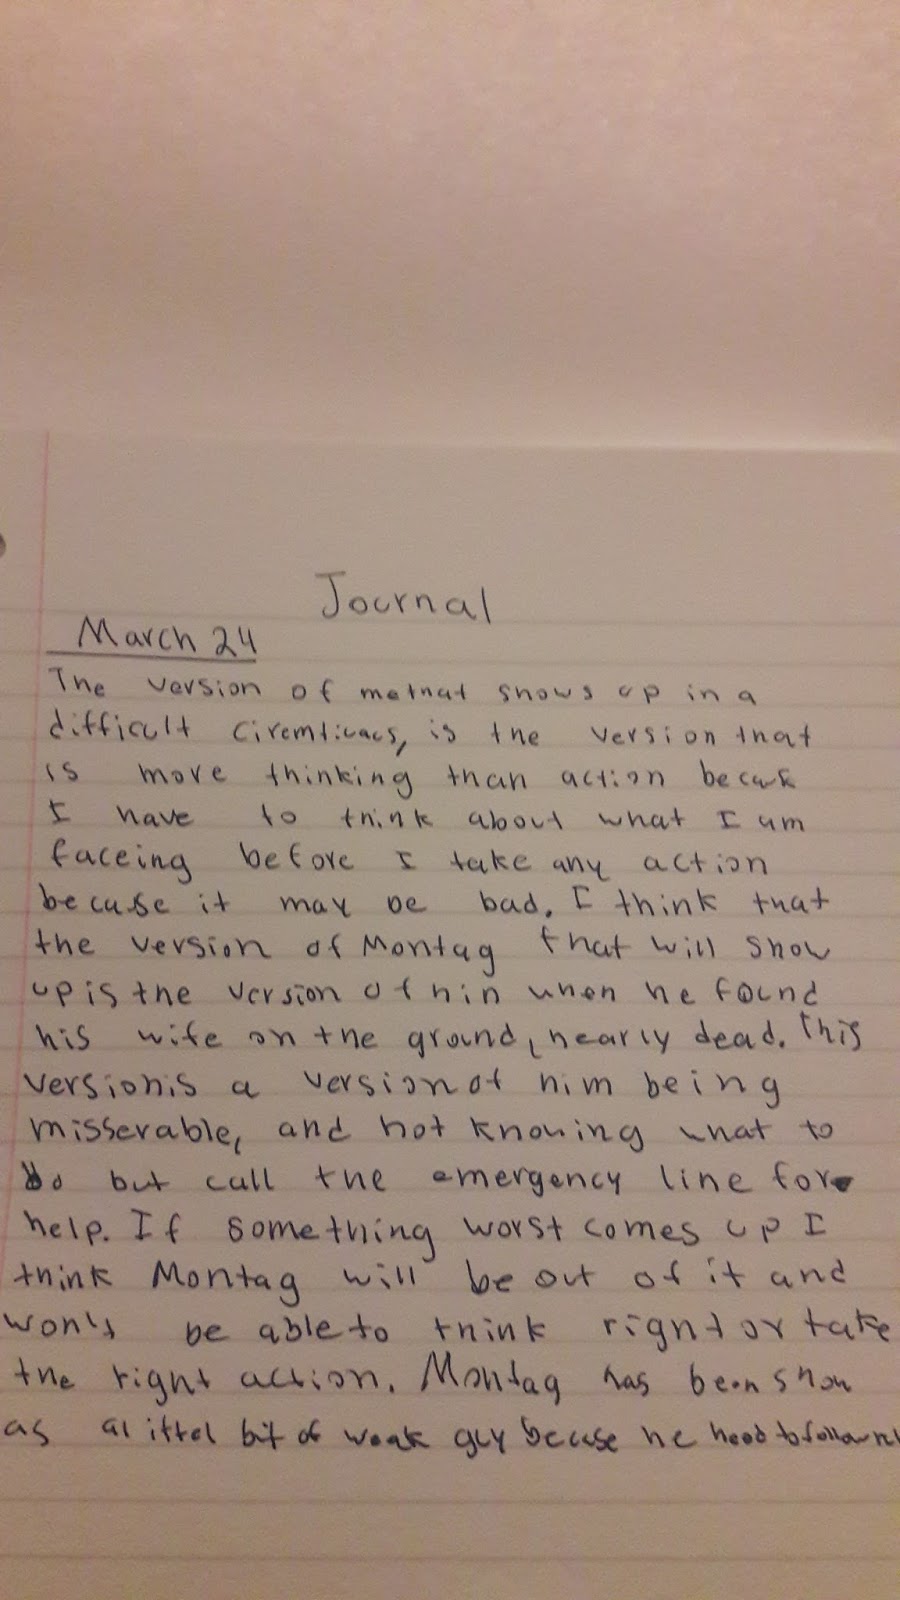 Journal
March 24
The version of me that shows up in a
difficult is the version that
is more thinking than action
I have to think about what I am
faceing before I take any action
becuse it may be bad. I think that
the version of Montag that will show
up is the version of him when he found
his wife on the ground, nearly dead. This
version is a version of him being
misserable, and not knowing what to
do but call the emergency line for
help. If something worst comes up I
think Montag will be out of it and
won't be able to think right or take
the right action. Montag has been show
as a littel bit of weak guy becuse he need to follow